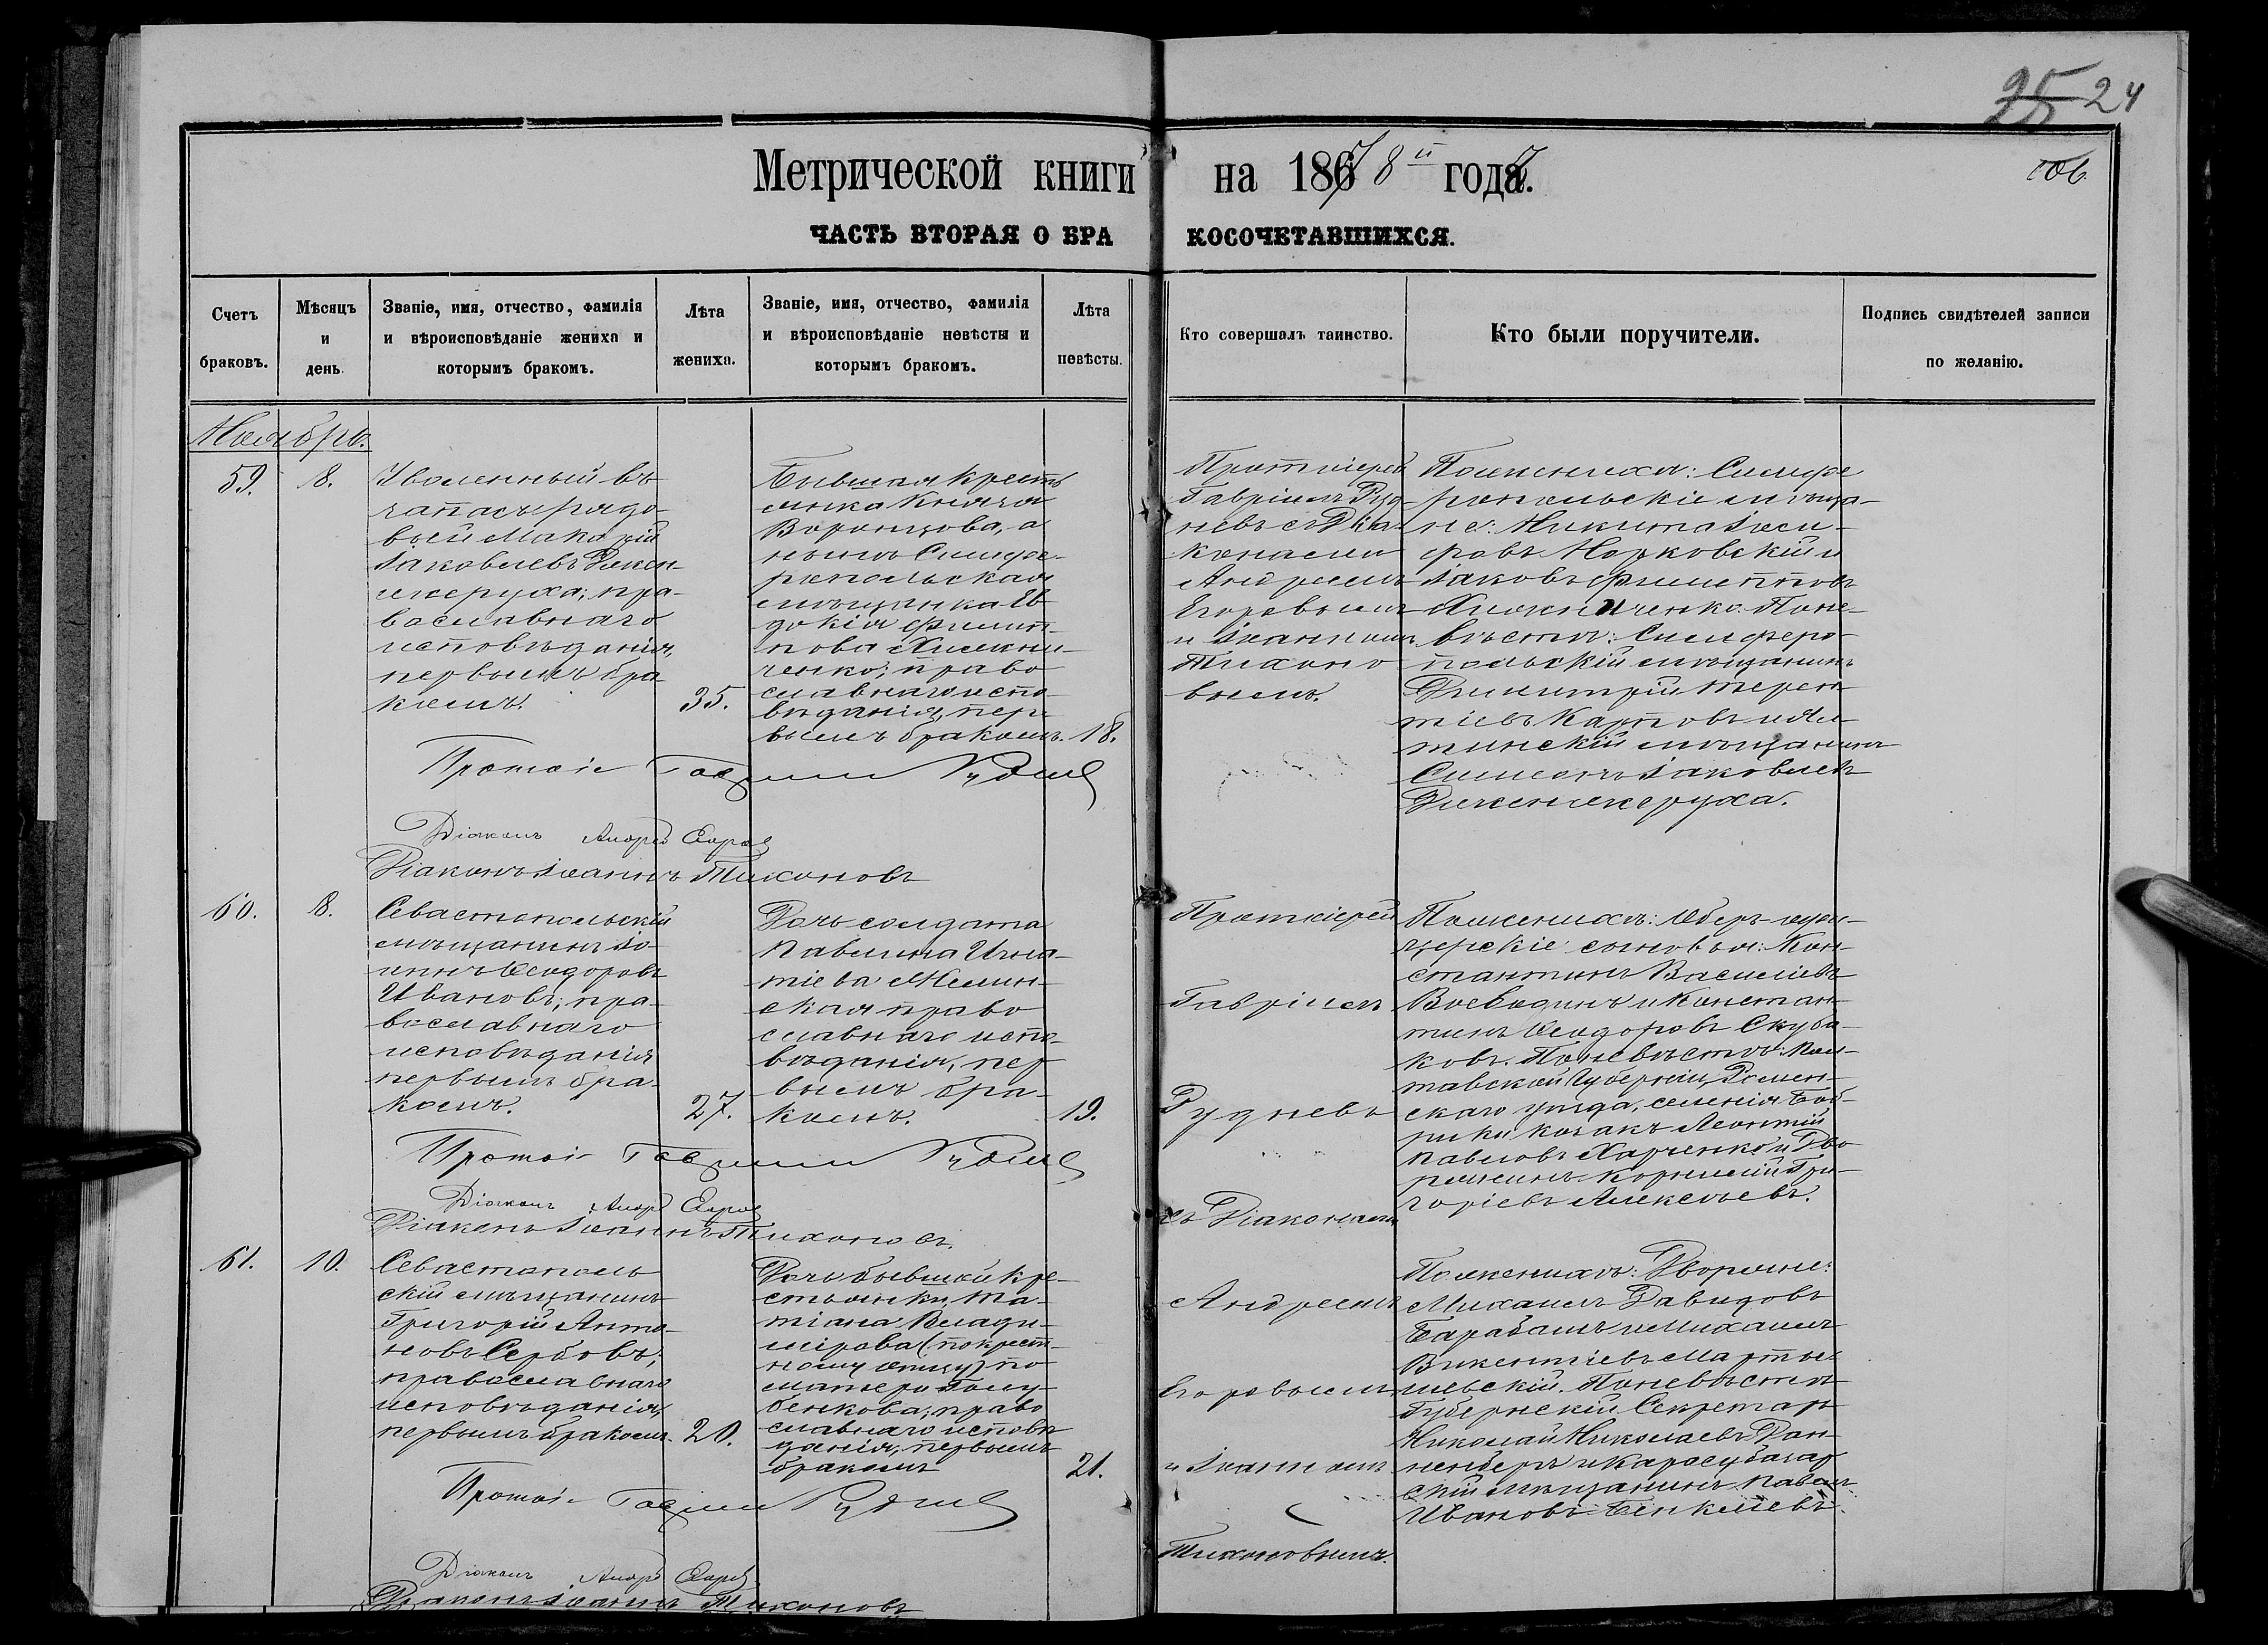 25 24
Метрической книги на 1878й год
106
ЧАСТЬ ВТОРАЯ О БРАКОСОЧЕТАВШИХСЯ.
Счетъ браковъ.
Мѣсяцъ и день.
Званіе, имя, отчество, фамилія и вѣроисповѣданіе жениха и которымъ бракомъ.
Лѣта жениха.
Званіе, имя, отчество, фамилія и вѣроисповѣданіе невѣсты и которымъ бракомъ.
Лѣта невѣсты.
Кто совершалъ таинство.
Кто были поручители.
Подпись свидѣтелей записи по желанію.
Ноябрь.
59.
8.
Уволенный въ
запасъ рядо-
вый Макарій
Іаковлевъ
православнаго
исповѣданія,
первымъ бра-
комъ.
35.
Бывшая кресть
янка Князя
Воронцова, а
нынѣ Симфе-
ропольская
мѣщанка Ев
докія Филип-
пова Хижни-
ченко; право
славнаго испо-
вѣданія, пер-
вымъ бракомъ.
18.
Протоіерей
Гавріилъ Руд-
невъ съ Діа-
конами
Андреемъ
Егоровымъ
и Іоанномъ
Тихоно
вымъ.
По женихѣ: Симфе
ропольскіе мѣща-
не: Никита Іоси-
фовъ Норковскій и
Іаковъ Филипповъ
Хижниченко. По не-
вѣстѣ: Симферо-
польскій мѣщанинъ
Димитрій Терен-
тіевъ Карповъ и Ял-
тинскій мѣщанинъ
Симеонъ Іаковлевъ
Протоіе Гавріилъ Рудневъ
Діаконъ Андрей Егоровъ
Діаконъ Іоаннъ Тихоновъ
60.
8.
Севастопольскій
мѣщанинъ Іо-
аннъ Ѳеодоровъ
Ивановъ; пра-
вославнаго
исповѣданія
первымъ бра-
комъ.
27.
Дочь солдата
Павлина Игна-
тіева
православнаго испо-
вѣданія, пер
вымъ бра-
комъ.
19.
Протоіерей
Гавріилъ
Рудневъ
съ Діаконами
Андреемъ
Егоровымъ
и Іоанномъ
Тихоновымъ.
По женихѣ: Оберъ-офи-
церскіе сыновья: Кон-
стантинъ Василіевъ
Воеводинъ и Констан-
тинъ Ѳеодоровъ Скуба-
ковъ. По невѣстѣ: Пол-
тавской Губерніи, Ромен-
скаго уѣзда, селенія Боб-
рики козакъ Леонтій
Павловъ Харченко и Дво
рянинъ Корнилій Гри-
горіевъ Алексѣевъ.
Протоіе Гавріилъ Рудневъ
Діаконъ Андрей Егоровъ
Діаконъ Іоаннъ Тихоновъ.
61.
10.
Севастополь
скій мѣщанинъ
Григорій Анто-
новъ Сербовъ;
православнаго
исповѣданія,
первымъ бракомъ.
20.
Дочь бывшей кре-
стьянки, Та-
тіана Влади-
мірова (по крест-
ному отцу) по
матери Голу-
бенкова; право
славнаго исповѣ
данія, первымъ
бракомъ
21.
По женихѣ: Дворяне:
Михаилъ Давидовъ
Барабашъ и Михаилъ
Викентіевъ
По невѣстѣ
Губернскій Секретарь
Николай Николаевъ Дан-
ненбергъ и Карасубазар
скій мѣщанинъ Павелъ
Ивановъ
Протоіе Гавріилъ Рудневъ
Діаконъ Андрей Егоровъ
Діаконъ Іоаннъ Тихоновъ